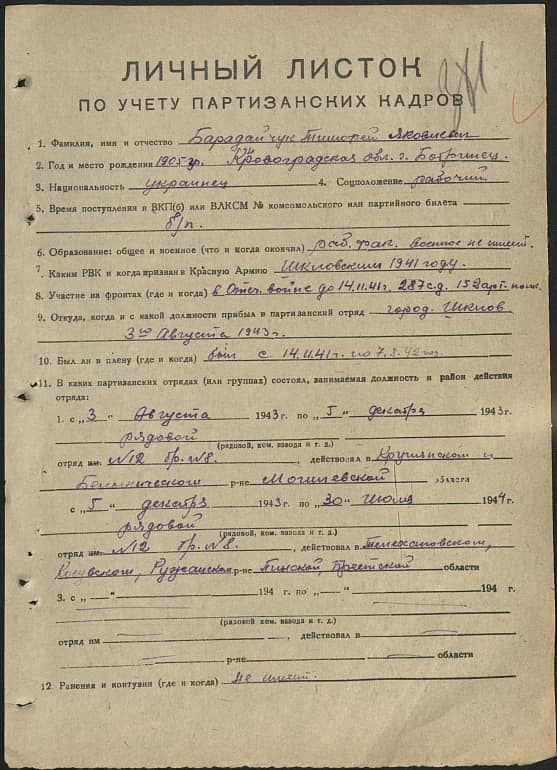 ЛИЧНЫЙ ЛИСТОК
ПО УЧЕТУ ПАРТИЗАНСКИХ КАДРОВ
1. Фамилия, имя и отчество Барадайчук Тимофей Яковлевич
2. Год и место рождения 1905 гр. Кировоградская обл. г. Бобринец.
3. Национальность украинец 4. Соцположение рабочий.
5. Время поступления в ВКП(б) или ВЛКСМ № комсомольского или партийного билета
б/п.
6. Образование: общее и военное (что и когда окончил) раб. фак. Военное не имеет.
7. Каким РВК и когда призван в Красную Армию Шкловским 1941 году.
8. Участие на фронтах (где и когда) в Отеч. войне до 14.11.41г. 287 с.д. 152 арт. полк.
9. Откуда, когда и с какой должности прибыл в партизанский отряд город Шклов
3го Августа 1943г.
10. Был ли в плену (где и когда) был с 14.11.41г. по 7.8.42
11. В каких партизанских отрядах (или группах) состоял, занимаемая должность и район действия
отряда:
1. с „3“ Августа 1943 г. по „5“ декабря 1943 г.
рядовой
(рядовой, ком. взвода и т. д.)
отряд им. №12 бр. №8. , действовал в Круглянском и
Белыничского р-не Могилевской области
с „5“ декабря 1943 г. по „30“ Июля 1944 г.
рядовой
(рядовой, ком. взвода и т. д.)
отряд им. №12 бр. №8. , действовал в Телехановском,
Косувском, Ружанском р-не Пинской, Брестской области
3. с „—“ 194 г. по „—“ 194 г.
(рядовой ком. взвода и т. д.)
отряд им , действовал в
р-не области
12. Ранения и контузии (где и когда) не имеет.